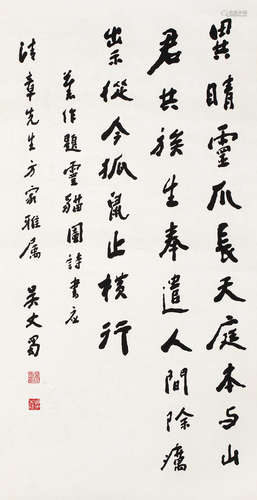 異睛靈爪長天庭本与山
君共族生奉遣人間除癘
出示從今狐鼠止橫行
舊作題靈貓圖詩書应
清章先生方家雅屬 吴丈蜀